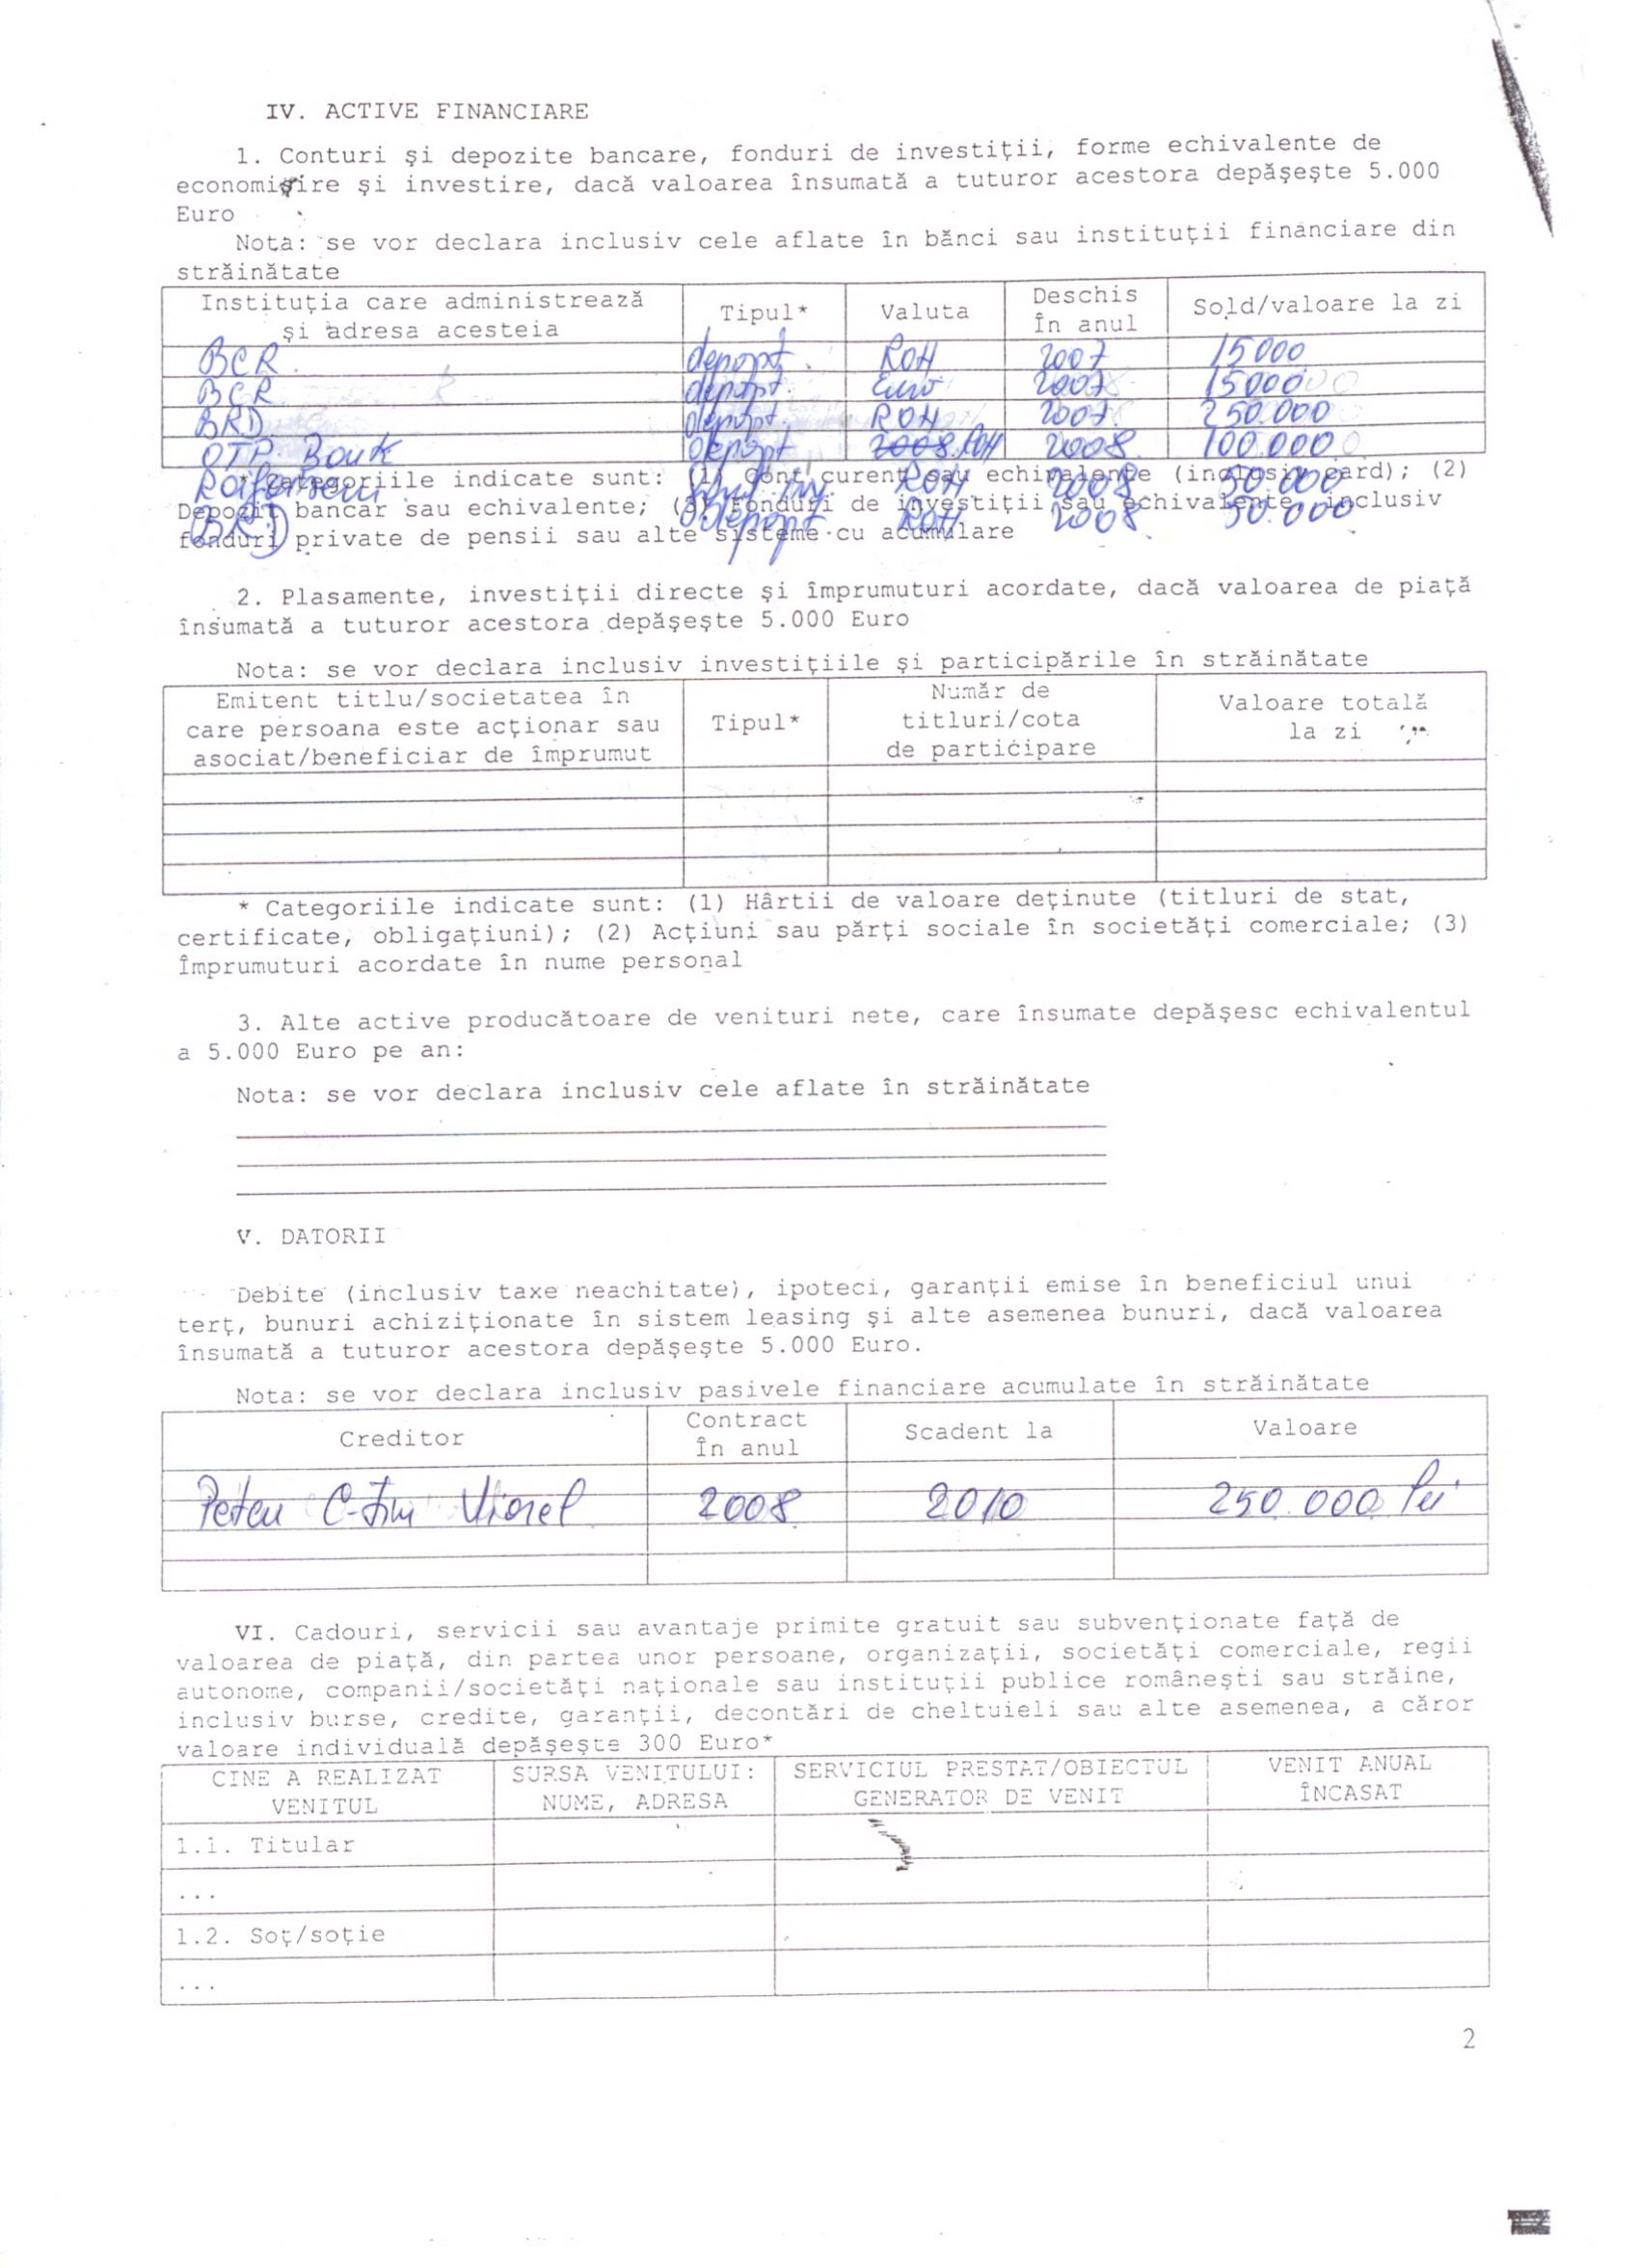 IV. ACTIVE FINANCIARE
1. Conturi şi depozite bancare, fonduri de investiţii, forme echivalente de
economisire şi investire, dacă valoarea însumată a tuturor acestora depăşeşte 5.000
Euro
Nota: se vor declara inclusiv cele aflate în bănci sau instituţii financiare din
străinătate
Instituţia care administrează şi adresa acesteia Tipul* Valuta Deschis în anul Sold/valoare la zi
BCR depozit RON 2007 15000
BCR depozit Euro 2007 15000
BRD depozit RON 2007 250.000
OTP Bank depozit 2008 RON 2008 100.000
* Categoriile indicate sunt: (1) Cont curent sau echivalente (inclusiv card); (2)
Raifaisen fond inv. RON 2008 50.000
Depozit bancar sau echivalente; (3) Fonduri de investiţii sau echivalente, inclusiv
BRD depozit RON 2008 50.000
fonduri private de pensii sau alte sisteme cu acumulare
2. Plasamente, investiţii directe şi împrumuturi acordate, dacă valoarea de piaţă
însumată a tuturor acestora depăşeşte 5.000 Euro
Nota: se vor declara inclusiv investiţiile şi participările în străinătate
Emitent titlu/societatea în care persoana este acţionar sau asociat/beneficiar de împrumut Tipul* Număr de titluri/cota de participare Valoare totală la zi
* Categoriile indicate sunt: (1) Hârtii de valoare deţinute (titluri de stat,
certificate, obligaţiuni); (2) Acţiuni sau părţi sociale în societăţi comerciale; (3)
Împrumuturi acordate în nume personal
3. Alte active producătoare de venituri nete, care însumate depăşesc echivalentul
a 5.000 Euro pe an:
Nota: se vor declara inclusiv cele aflate în străinătate
V. DATORII
Debite (inclusiv taxe neachitate), ipoteci, garanţii emise în beneficiul unui
terţ, bunuri achiziţionate în sistem leasing şi alte asemenea bunuri, dacă valoarea
însumată a tuturor acestora depăşeşte 5.000 Euro.
Nota: se vor declara inclusiv pasivele financiare acumulate în străinătate
Creditor Contract în anul Scadent la Valoare
Petcu Viorel 2008 2010 250.000 lei
VI. Cadouri, servicii sau avantaje primite gratuit sau subvenţionate faţă de
valoarea de piaţă, din partea unor persoane, organizaţii, societăţi comerciale, regii
autonome, companii/societăţi naţionale sau instituţii publice româneşti sau străine,
inclusiv burse, credite, garanţii, decontări de cheltuieli sau alte asemenea, a căror
valoare individuală depăşeşte 300 Euro*
CINE A REALIZAT VENITUL SURSA VENITULUI: NUME, ADRESA SERVICIUL PRESTAT/OBIECTUL GENERATOR DE VENIT VENIT ANUAL ÎNCASAT
1.1. Titular
...
1.2. Soţ/soţie
...
2